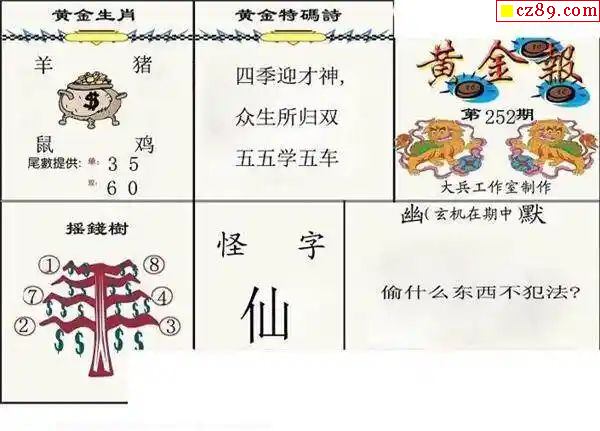 cz89.com
黄金生肖
羊 猪
$
鼠 鸡
尾數提供: 单: 3 5
双: 6 0
黄金特碼詩
四季迎才神,
众生所归双
五五学五车
黄金報
第252期
大兵工作室制作
摇錢樹
① ⑧
⑦ ④
② ③
$ $ $ $ $ $ $ $
怪字
仙
幽(玄机在期中)默
偷什么东西不犯法?